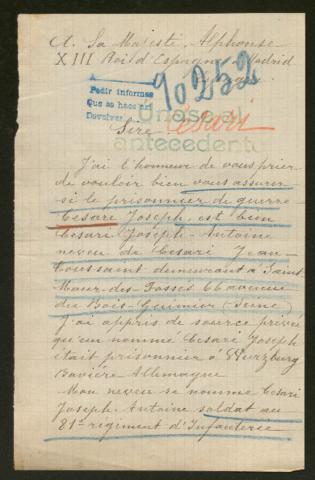 A. Sa Majesté, Alphonse
XIII Roi d'Espagne Madrid
Pedir informes
Que se hace así
Devolver
90252
Unase al
antecedente
Sire Cesari
J'ai l'honneur de vous prier
de vouloir bien vous assurer
si le prisonnier de guerre
Cesare Joseph, est bien
Cesari Joseph-Antoine
neveu de Cesari Jean-
Toussaint demeurant à Saint
Maur-des-Fossés 66 avenue
du Bois-Guimier (Seine)
J'ai appris de source privée
qu'un nommé Cesari Joseph
était prisonnier à Wurzburg
Bavière Allemagne
Mon neveu se nomme Cesari
Joseph Antoine soldat au
81e régiment d'Infanterie